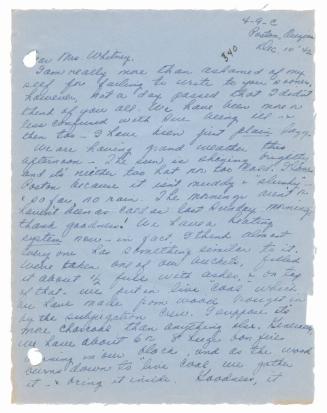 4-9-C
Poston, Arizona
Dec 10 '42
Dear Mrs. Whitney:
I am really more than ashamed of my
self for failing to write to you sooner.
However, not a day passed that I didn't
think of you all. We have been more or
less confined with Sue being ill &
then too - I have been just plain lazy.
We are having grand weather this
afternoon - The sun is shining brightly
and it's neither too hot nor too cold.
Poston because it isn't muddy &
& so far, no rain. The mornings aren't
haven't been as cold as last Sunday morning
thank goodness! We have a heating
system now - in fact, I think almost
every one has something similar to it.
We've taken one of our buckets, filled
it about 1/2 full with ashes, & on top
of that - we put in live coal which
we have made from wood brought in
by the subjugation crew. I suppose its
more charcoal than anything else.
we have about 6 or 8 huge bon fires
in our block, and as the wood
burns down to live coal we gather
it & bring it inside. Goodness, it